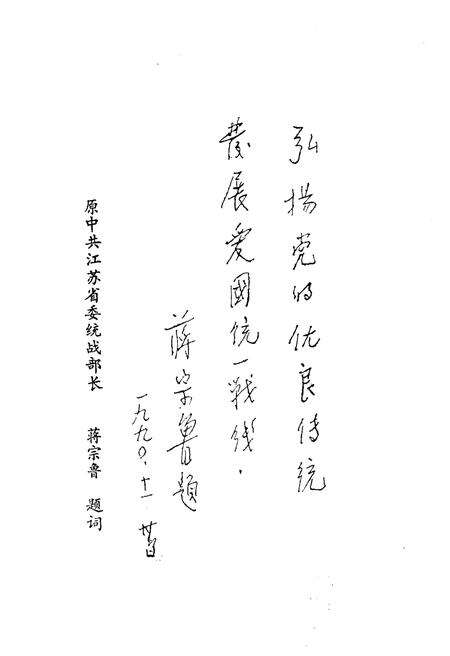 弘揚党的优良传统
發展爱國统一戰线.
蒋宗鲁題
一九九〇.十一.廿日
原中共江苏省委统战部长 蒋宗鲁 题词